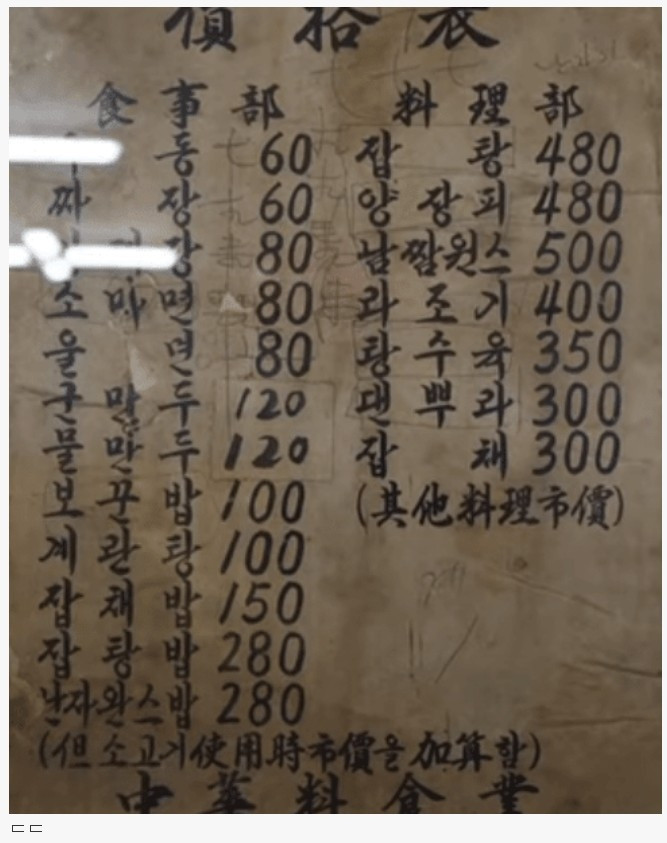 價格表
食事部
동 60
짜장 60
장 80
소마면 80
울면 80
군만두 120
물만두 120
보끈밥 100
계란탕 100
잡채밥 150
잡탕밥 280
난자완스밥 280
(但 소고기使用時市價을 加算함)
料理部
잡탕 480
양장피 480
남짬원스 500
라조기 400
탕수육 350
댄뿌라 300
잡채 300
(其他料理市價)
中華料食業
ㄷㄷ